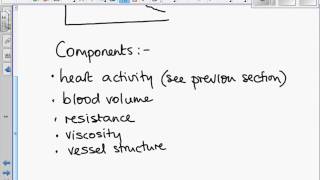 Components:-
• heart activity (see previous section)
• blood volume
• resistance
• viscosity
• vessel structure